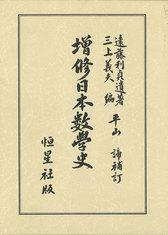 遠藤利貞遺著
三上義夫 編
平山 諦補訂
増修日本数學史
恒星社版